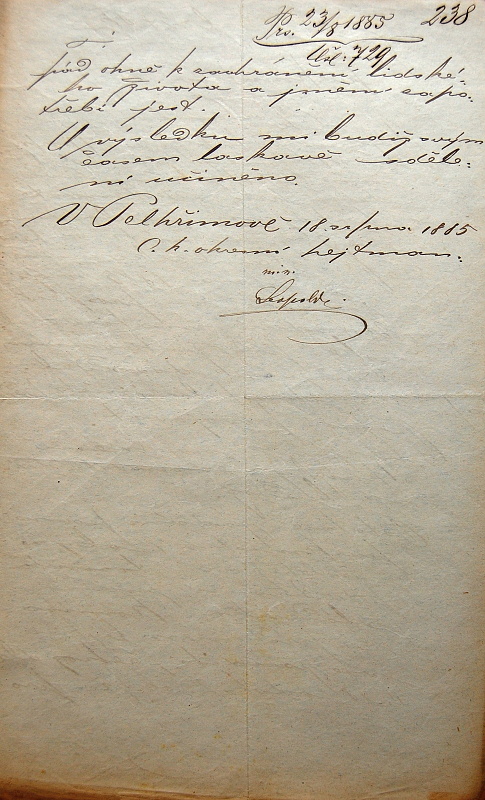 238
Prs. 23/8 1885
Čísl: 729
pád ohně k zachránění lidské-
ho života a jmění zapo-
třebí jest.
O výsledku mi budiž svým
časem laskavě sděle-
ní učiněno.
V Pelhřimově 18. srpna 1885
C. k. okresní hejtman: